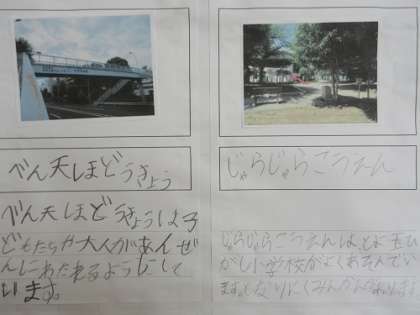 べん天ほどうきょう
べん天ほどうきょうは子
どもたちや大人があんぜ
んにわたれるようにして
います。
じゃらじゃらこうえん
じゃらじゃらこうえんはとよ玉ひ
がし小学校がよくあそんでい
ます。となりにくみんかんがあります